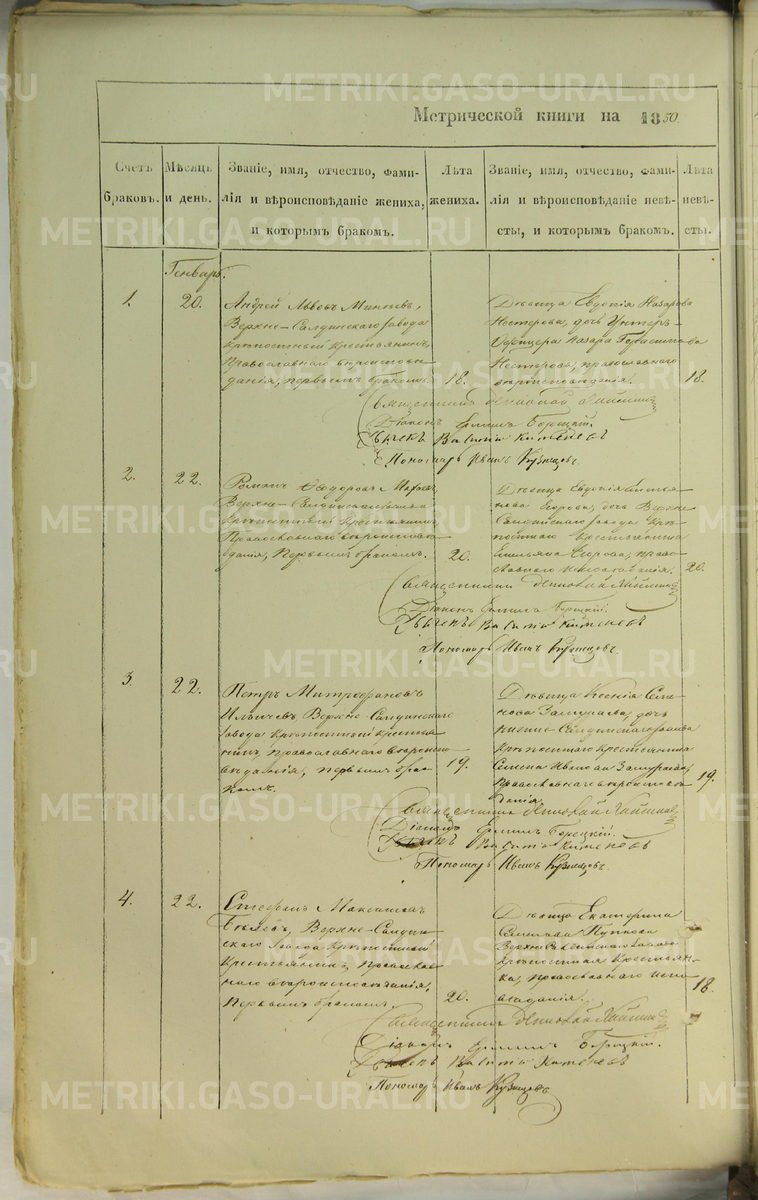 METRIKI.GASO-URAL.RU
Метрической книги на 1850
Счетъ браковъ.
Мѣсяцъ и день.
Званіе, имя, отчество, фами-
лія и вѣроисповѣданіе жениха,
и которымъ бракомъ.
Лѣта жениха.
Званіе, имя, отчество, фами-
лія и вѣроисповѣданіе невѣ-
сты, и которымъ бракомъ.
Лѣта невѣ-
сты.
Генварь.
1.
20.
Андрей Львовъ
Верхне-Салдинскаго завода
крѣпостный крестьянинъ,
Православнаго вѣроисповѣ-
данія, первымъ бракомъ.
18.
Дѣвица Евдокія Назарова
Нестерова, дочь Унтеръ-
Офицера Назара Герасимова
Нестерова, православнаго
вѣроисповѣданія.
18.
Священникъ Николай
Діаконъ Ефимъ Борецкій.
Дьячекъ Василій
Пономарь Иванъ Кузнецовъ.
2.
22.
Романъ Ѳеодоровъ
Верхне-Салдинскаго завода
крѣпостный крестьянинъ,
Православнаго вѣроисповѣ-
данія, Первымъ бракомъ.
20.
Дѣвица Евдокія Емелья-
нова Егорова, дочь Верхне
Салдинскаго завода крѣ-
постнаго крестьянина
Емельяна Егорова, право-
славнаго исповѣданія.
20.
Священникъ Николай
Діаконъ Ефимъ Борецкій.
Дьячекъ Василій
Пономарь Иванъ Кузнецовъ.
3.
22.
Петръ Митрофановъ
Ильичевъ, Верхне-Салдинскаго
завода крѣпостный крестья-
нинъ, православнаго вѣроиспо-
вѣданія, первымъ бра-
комъ.
19.
Дѣвица Ксенія Семе-
нова дочь
Нижне-Салдинскаго завода
крѣпостнаго крестьянина
Семена Иванова
православнаго вѣроисповѣ-
данія.
19.
Священникъ Николай
Діаконъ Ефимъ Борецкій.
Дьячекъ Василій
Пономарь Иванъ Кузнецовъ.
4.
22.
Стефанъ Максимовъ
Верхне-Салдин-
скаго завода крѣпостный
крестьянинъ, Православ-
наго вѣроисповѣданія,
Первымъ бракомъ.
20.
Дѣвица Екатерина
завода
крѣпостная крестьян-
ка, православнаго испо-
вѣданія.
18.
Священникъ Николай
Діаконъ Ефимъ Борецкій.
Дьячекъ Василій
Пономарь Иванъ Кузнецовъ